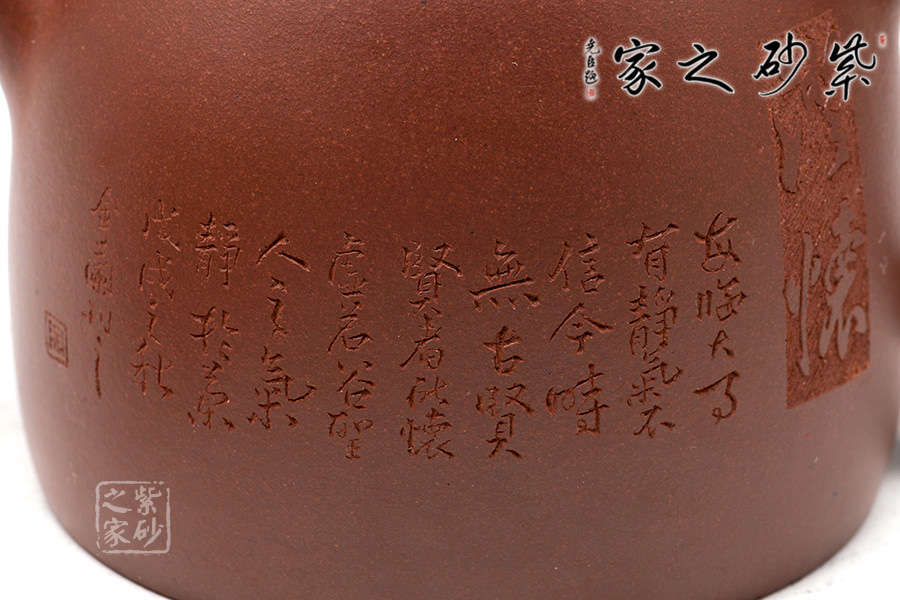 紫砂之家
懷
每臨大事
有靜氣不
信今時
無古賢
賢者所懷
虛若谷聖
人之氣
靜於蘭
戊戌之秋
紫砂之家